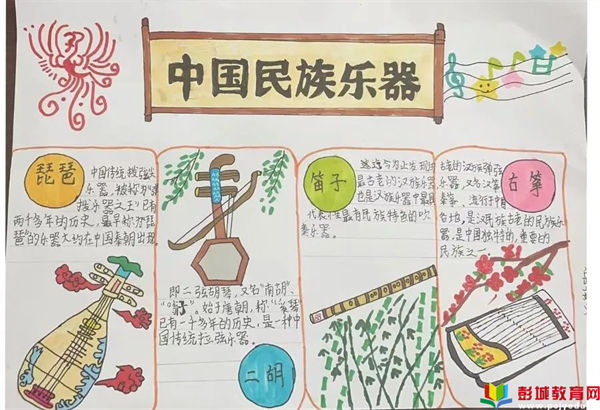 中国民族乐器
琵琶
中国传统拨弦乐
器，被称为"弹
拨乐器之王"已有
两千多年的历史，最早称为"琵
琶"的乐器大约在中国秦朝出现
即二弦胡琴，又名"南胡"、
始于唐朝，称"奚琴"
已有一千多年的历史，是一种中
国传统拉弦乐器。
二胡
笛子
迄今为止发现的
最古老的汉族乐器
也是汉族乐器中最具
代表性最有民族特色的吹
奏乐器。
古筝
古老的汉族弹弦
乐器，又名汉筝
秦筝，流行于中国
各地，是汉民族古老的民族乐
器，是中国独特的、重要的
民族乐
彭城教育网